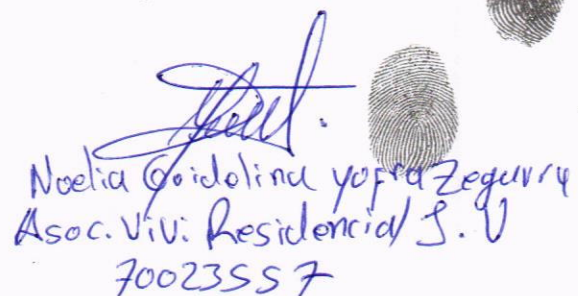 Noelia Goidolina yopra Zegurra
Asoc. Vivi. Residencial S. V
70023557